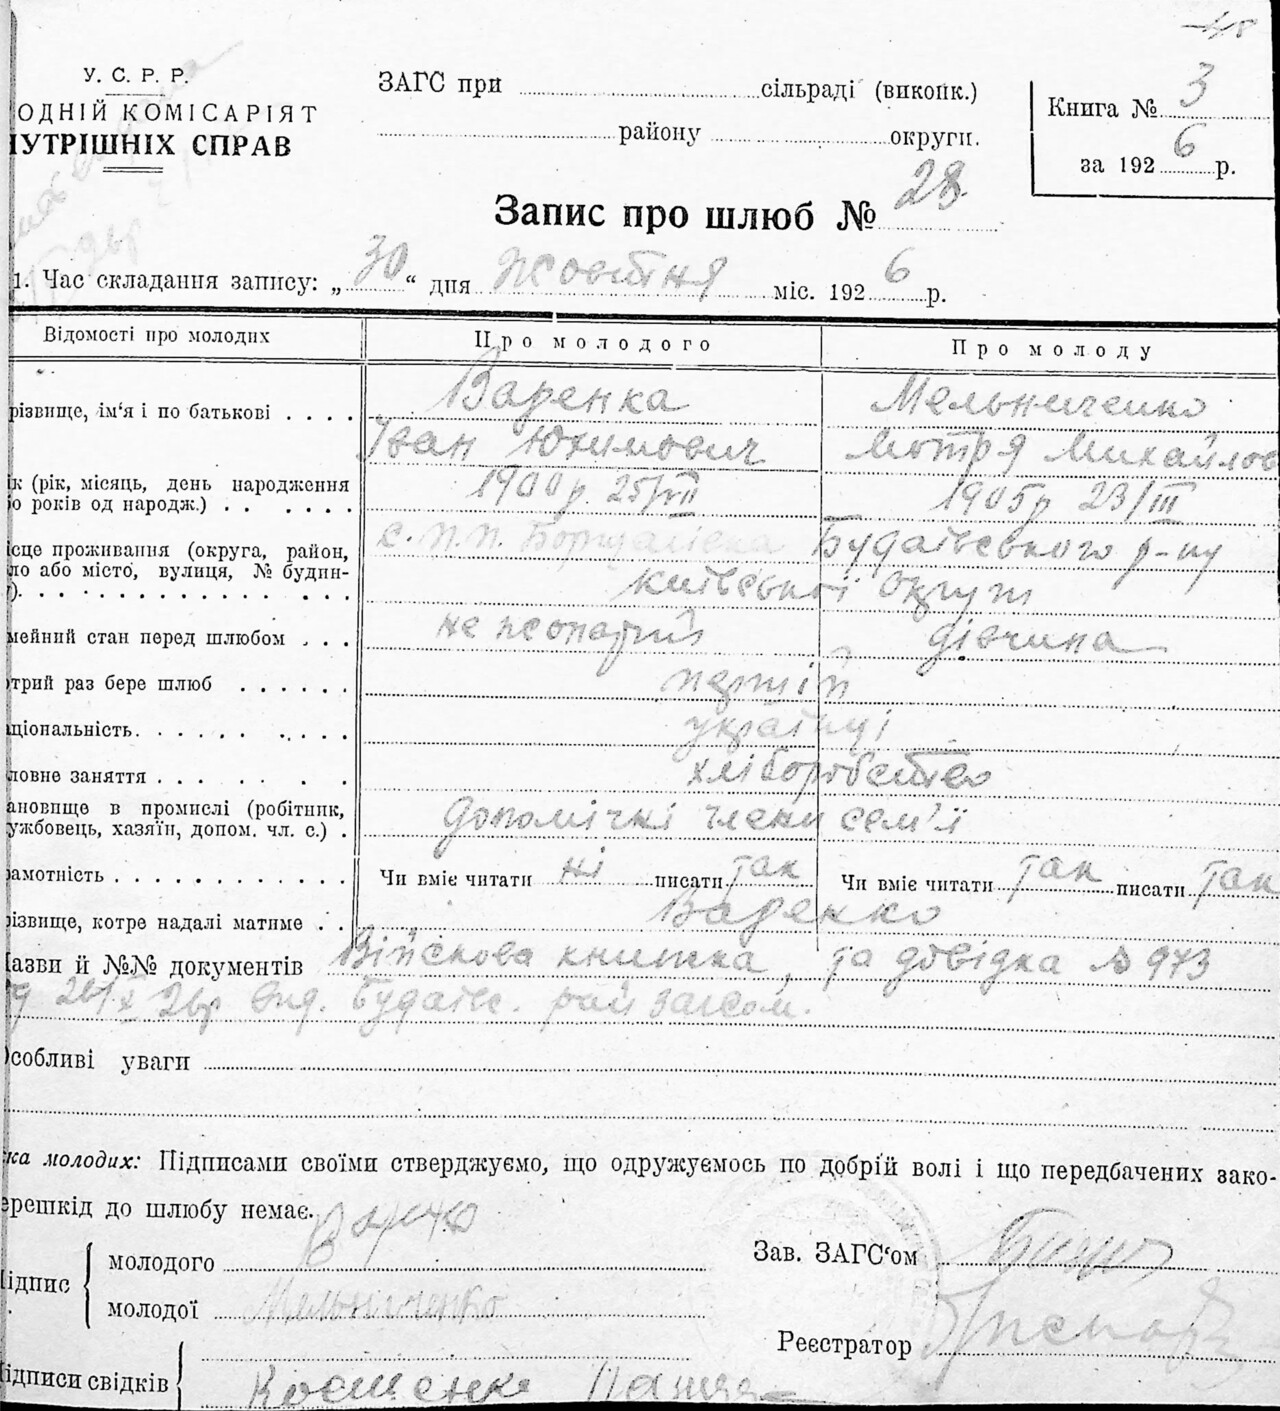 У. С. Р. Р.
ОДНІЙ КОМІСАРІЯТ
НУТРІШНІХ СПРАВ
ЗАГС при сільраді (викопк.)
району округи.
Книга № 3
за 1926 р.
Запис про шлюб № 28
1. Час складання запису: „30“ дня Жовтня міс. 1926 р.
Відомості про молодих Про молодого Про молоду
різвище, ім'я і по батькові . . . . Варенка Мельниченко
Іван Юхимович Мотря Михайлов
ік (рік, місяць, день народження 1900р. 25/VII 1905р 23/III
о років од народж.) . . . . . .
ісце проживання (округа, район, с. П.П. Борщагівка Будаївського р-ну
ло або місто, вулиця, № будин-
). . . . . . . . . . . . . . . . Київської округи
мейний стан перед шлюбом . . . не жонатий дівчина
отрий раз бере шлюб . . . . . . перший
аціональність. . . . . . . . . . . українці
ловне заняття . . . . . . . . хліборобство
ановище в промислі (робітник,
ужбовець, хазяїн, допом. чл. с.) . допомічні члени сем'ї
рамотність . . . . . . . . . . . . Чи вміє читати ні писати так Чи вміє читати так писати так
різвище, котре надалі матиме . . Варенко
Назви й №№ документів Військова книжка, та довідка № 973
26/X 26р вид. Будаївс. рай загсом.
Особливі уваги
ка молодих: Підписами своїми стверджуємо, що одружуємось по добрій волі і що передбачених зако-
ерешкід до шлюбу немає.
ідпис молодого Варенко Зав. ЗАГС'ом
молодої Мельниченко
Реєстратор
ідписи свідків